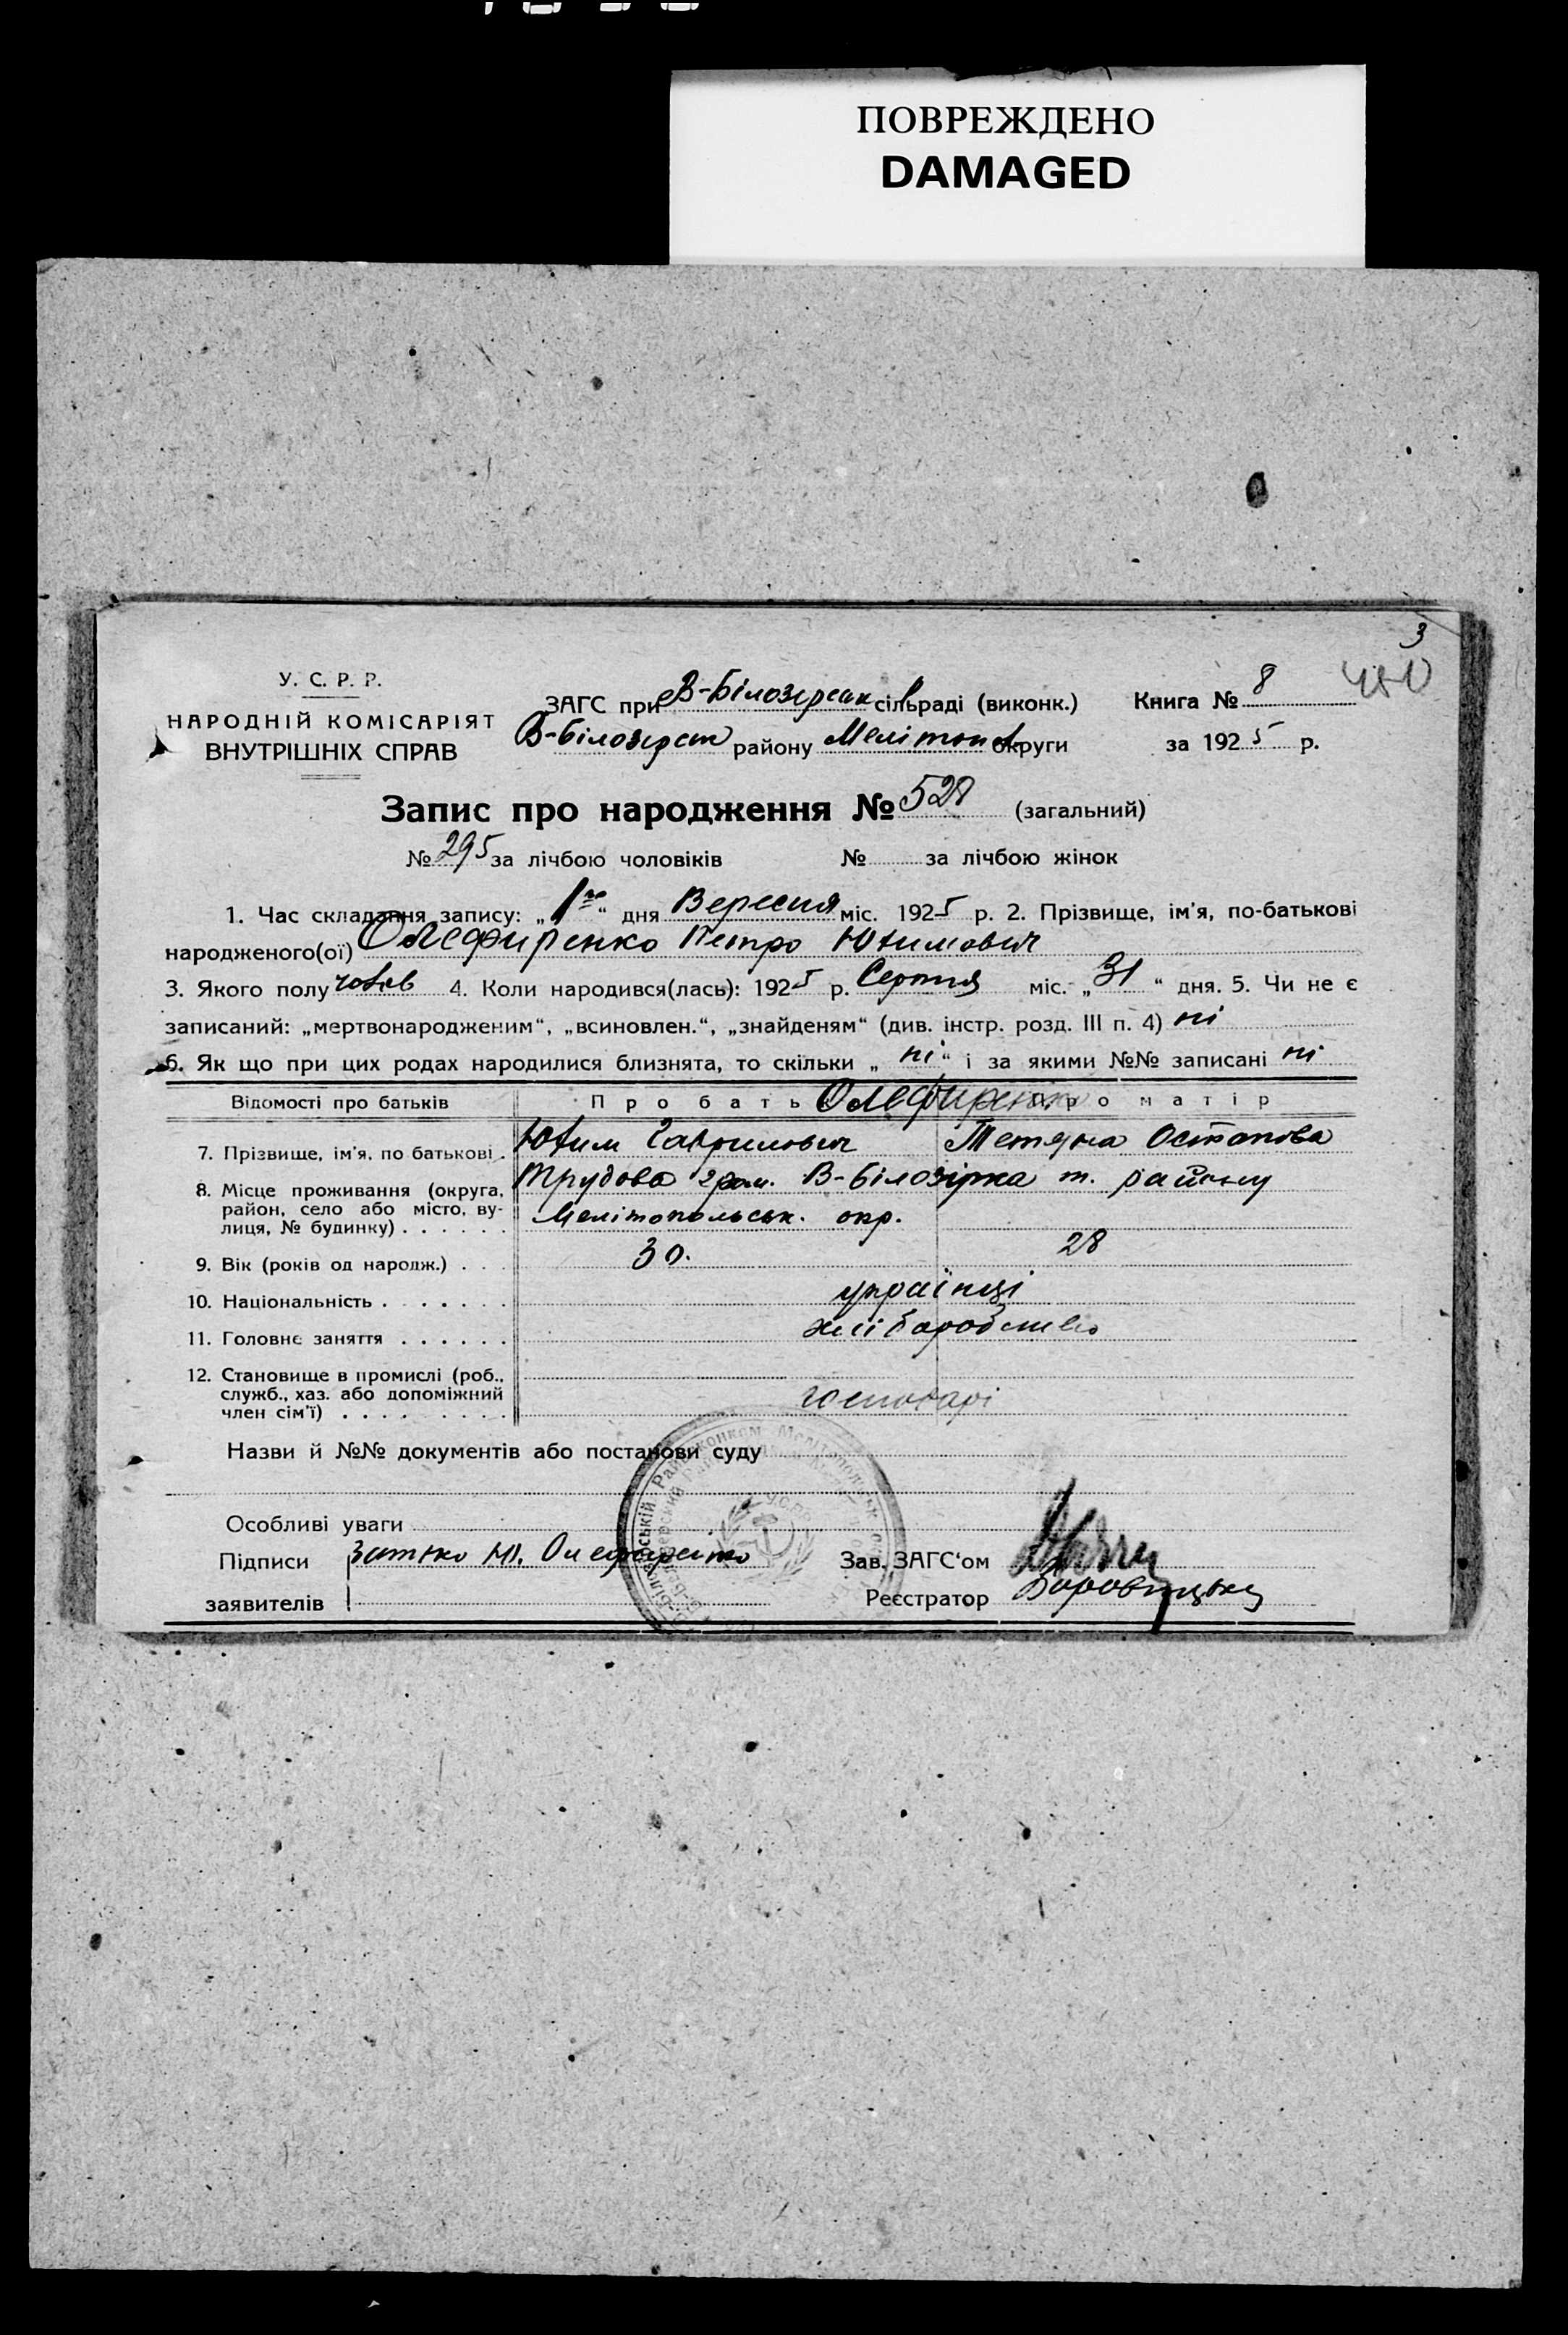 ПОВРЕЖДЕНО
DAMAGED
3
У. С. Р. Р.
НАРОДНІЙ КОМІСАРІЯТ
ВНУТРІШНІХ СПРАВ
ЗАГС при В-Білозерськ сільраді (виконк.) Книга № 8
В-Білозерськ району Мелітоп округи за 1925 р.
Запис про народження № 528 (загальний)
№ 295 за лічбою чоловіків № за лічбою жінок
1. Час складання запису: „1го“ дня Вересня міс. 1925 р. 2. Прізвище, ім'я, по-батькові
народженого(ої) Олефиренко Петро Юхимович
3. Якого полу чолов 4. Коли народився(лась): 1925 р. Серпня міс. „31“ дня. 5. Чи не є
записаний: „мертвонародженим“, „всиновлен.“, „знайденям“ (див. інстр. розд. III п. 4) ні
6. Як що при цих родах народилися близнята, то скільки „ні“ і за якими №№ записані ні
Відомості про батьків Про батька Олефиренко Про матір
7. Прізвище, ім'я, по батькові . Юхим Гаврилович Тетяна Остапова
8. Місце проживання (округа, Трудова гром. В-Білозірка т. району
район, село або місто, ву-
лиця, № будинку) . . . . . . Мелітопольськ. окр.
9. Вік (років од народж.) . . . 30. 28
10. Національність . . . . . . . українці
11. Головне заняття . . . . . . хліборобство
12. Становище в промислі (роб.,
служб., хаз. або допоміжний
член сім'ї) . . . . . . . . господарі
Назви й №№ документів або постанови суду
Особливі уваги
Підписи Ю. Олефиренко Зав. ЗАГС'ом
заявителів Реєстратор
У.С.Р.Р.